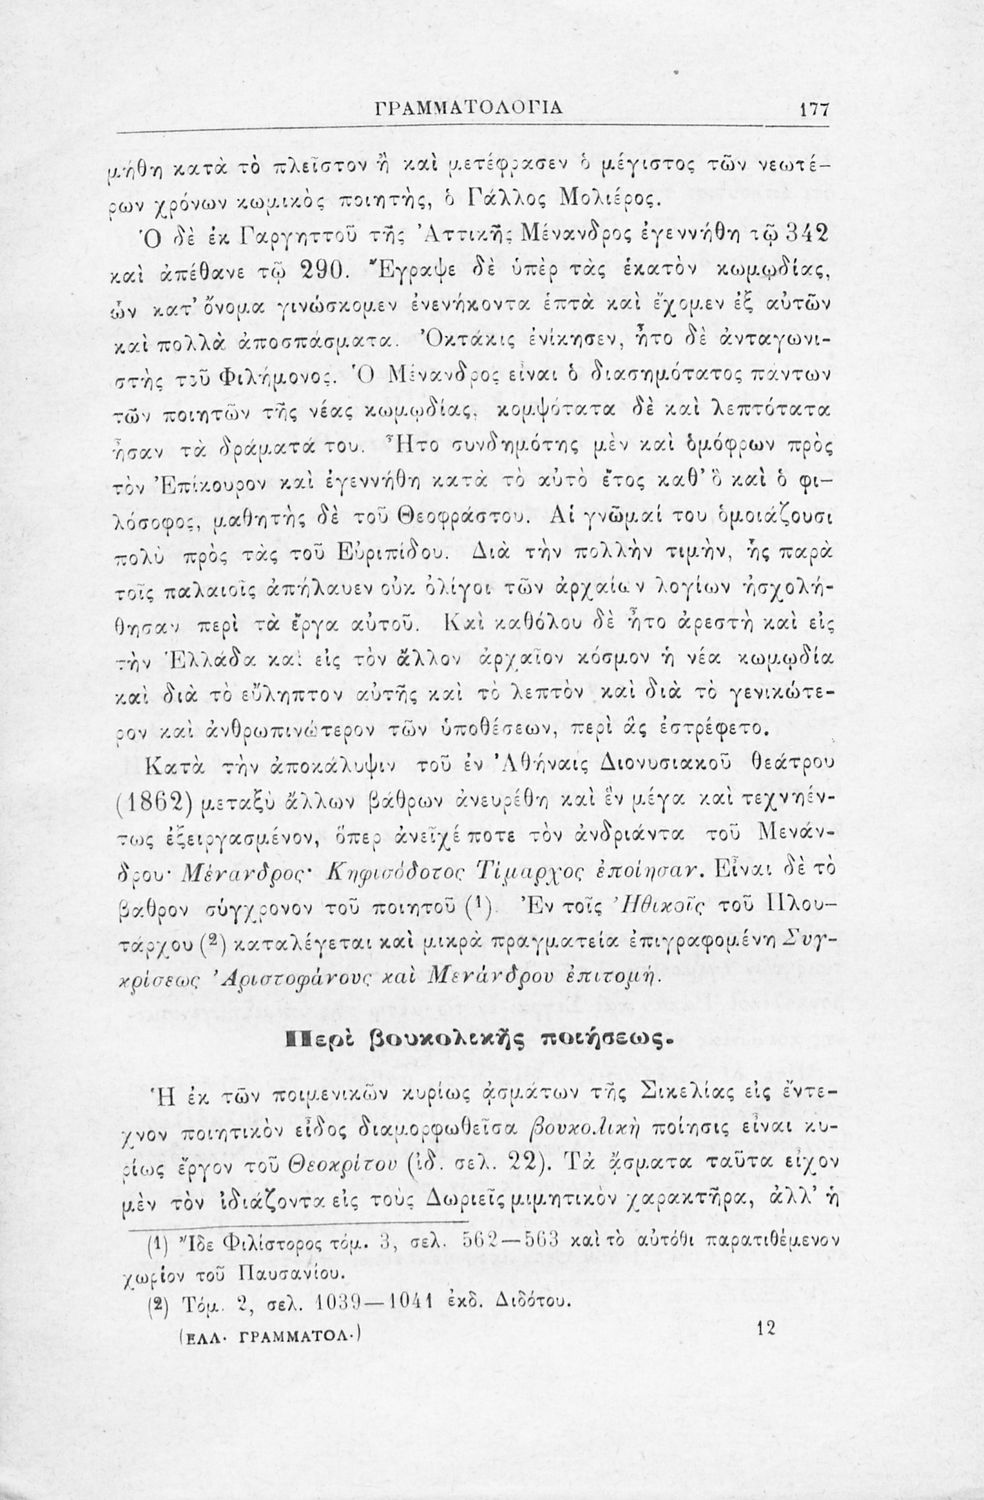 ΓΡΑΜΜΑΤΟΛΟΓΙΑ 177
μήθη κατὰ τὸ πλεῖστον ἢ καὶ μετέφρασεν ὁ μέγιστος τῶν νεωτέ-
ρων χρόνων κωμικὸς ποιητὴς, ὁ Γάλλος Μολιέρος.
Ὁ δὲ ἐκ Γαργηττοῦ τῆς Ἀττικῆς Μένανδρος ἐγεννήθη τῷ 342
καὶ ἀπέθανε τῷ 290. Ἔγραψε δὲ ὑπὲρ τὰς ἑκατὸν κωμῳδίας,
ὧν κατ' ὄνομα γινώσκομεν ἐνενήκοντα ἑπτὰ καὶ ἔχομεν ἐξ αὐτῶν
καὶ πολλὰ ἀποσπάσματα. Ὀκτάκις ἐνίκησεν, ἦτο δὲ ἀνταγωνι-
στὴς τοῦ Φιλήμονος. Ὁ Μένανδρος εἶναι ὁ διασημότατος πάντων
τῶν ποιητῶν τῆς νέας κωμῳδίας, κομψότατα δὲ καὶ λεπτότατα
ἦσαν τὰ δράματά του. Ἦτο συνδημότης μὲν καὶ ὁμόφρων πρὸς
τὸν Ἐπίκουρον καὶ ἐγεννήθη κατὰ τὸ αὐτὸ ἔτος καθ' ὃ καὶ ὁ φι-
λόσοφος, μαθητὴς δὲ τοῦ Θεοφράστου. Αἱ γνῶμαί του ὁμοιάζουσι
πολὺ πρὸς τὰς τοῦ Εὐριπίδου. Διὰ τὴν πολλὴν τιμὴν, ἧς παρὰ
τοῖς παλαιοῖς ἀπήλαυεν οὐκ ὀλίγοι τῶν ἀρχαίων λογίων ἠσχολή-
θησαν περὶ τὰ ἔργα αὐτοῦ. Καὶ καθόλου δὲ ἦτο ἀρεστὴ καὶ εἰς
τὴν Ἑλλάδα καὶ εἰς τὸν ἄλλον ἀρχαῖον κόσμον ἡ νέα κωμῳδία
καὶ διὰ τὸ εὔληπτον αὐτῆς καὶ τὸ λεπτὸν καὶ διὰ τὸ γενικώτε-
ρον καὶ ἀνθρωπινώτερον τῶν ὑποθέσεων, περὶ ἃς ἐστρέφετο.
Κατὰ τὴν ἀποκάλυψιν τοῦ ἐν Ἀθήναις Διονυσιακοῦ θεάτρου
(1862) μεταξὺ ἄλλων βάθρων ἀνευρέθη καὶ ἓν μέγα καὶ τεχνηέν-
τως ἐξειργασμένον, ὅπερ ἀνεῖχέ ποτε τὸν ἀνδριάντα τοῦ Μενάν-
δρου· Μένανδρος· Κηφισόδοτος Τίμαρχος ἐποίησαν. Εἶναι δὲ τὸ
βάθρον σύγχρονον τοῦ ποιητοῦ (1). Ἐν τοῖς Ἠθικοῖς τοῦ Πλου-
τάρχου (2) καταλέγεται καὶ μικρὰ πραγματεία ἐπιγραφομένη Συγ-
κρίσεως Ἀριστοφάνους καὶ Μενάνδρου ἐπιτομή.
Περὶ βουκολικῆς ποιήσεως.
Ἡ ἐκ τῶν ποιμενικῶν κυρίως ᾀσμάτων τῆς Σικελίας εἰς ἔντε-
χνον ποιητικὸν εἶδος διαμορφωθεῖσα βουκολικὴ ποίησις εἶναι κυ-
ρίως ἔργον τοῦ Θεοκρίτου (ἰδ. σελ. 22). Τὰ ᾄσματα ταῦτα εἶχον
μὲν τὸν ἰδιάζοντα εἰς τοὺς Δωριεῖς μιμητικὸν χαρακτῆρα, ἀλλ' ἡ
(1) Ἴδε Φιλίστορος τόμ. 3, σελ. 562—563 καὶ τὸ αὐτόθι παρατιθέμενον
χωρίον τοῦ Παυσανίου.
(2) Τόμ. 2, σελ. 1039—1041 ἐκδ. Διδότου.
(ΕΛΛ. ΓΡΑΜΜΑΤΟΛ.) 12